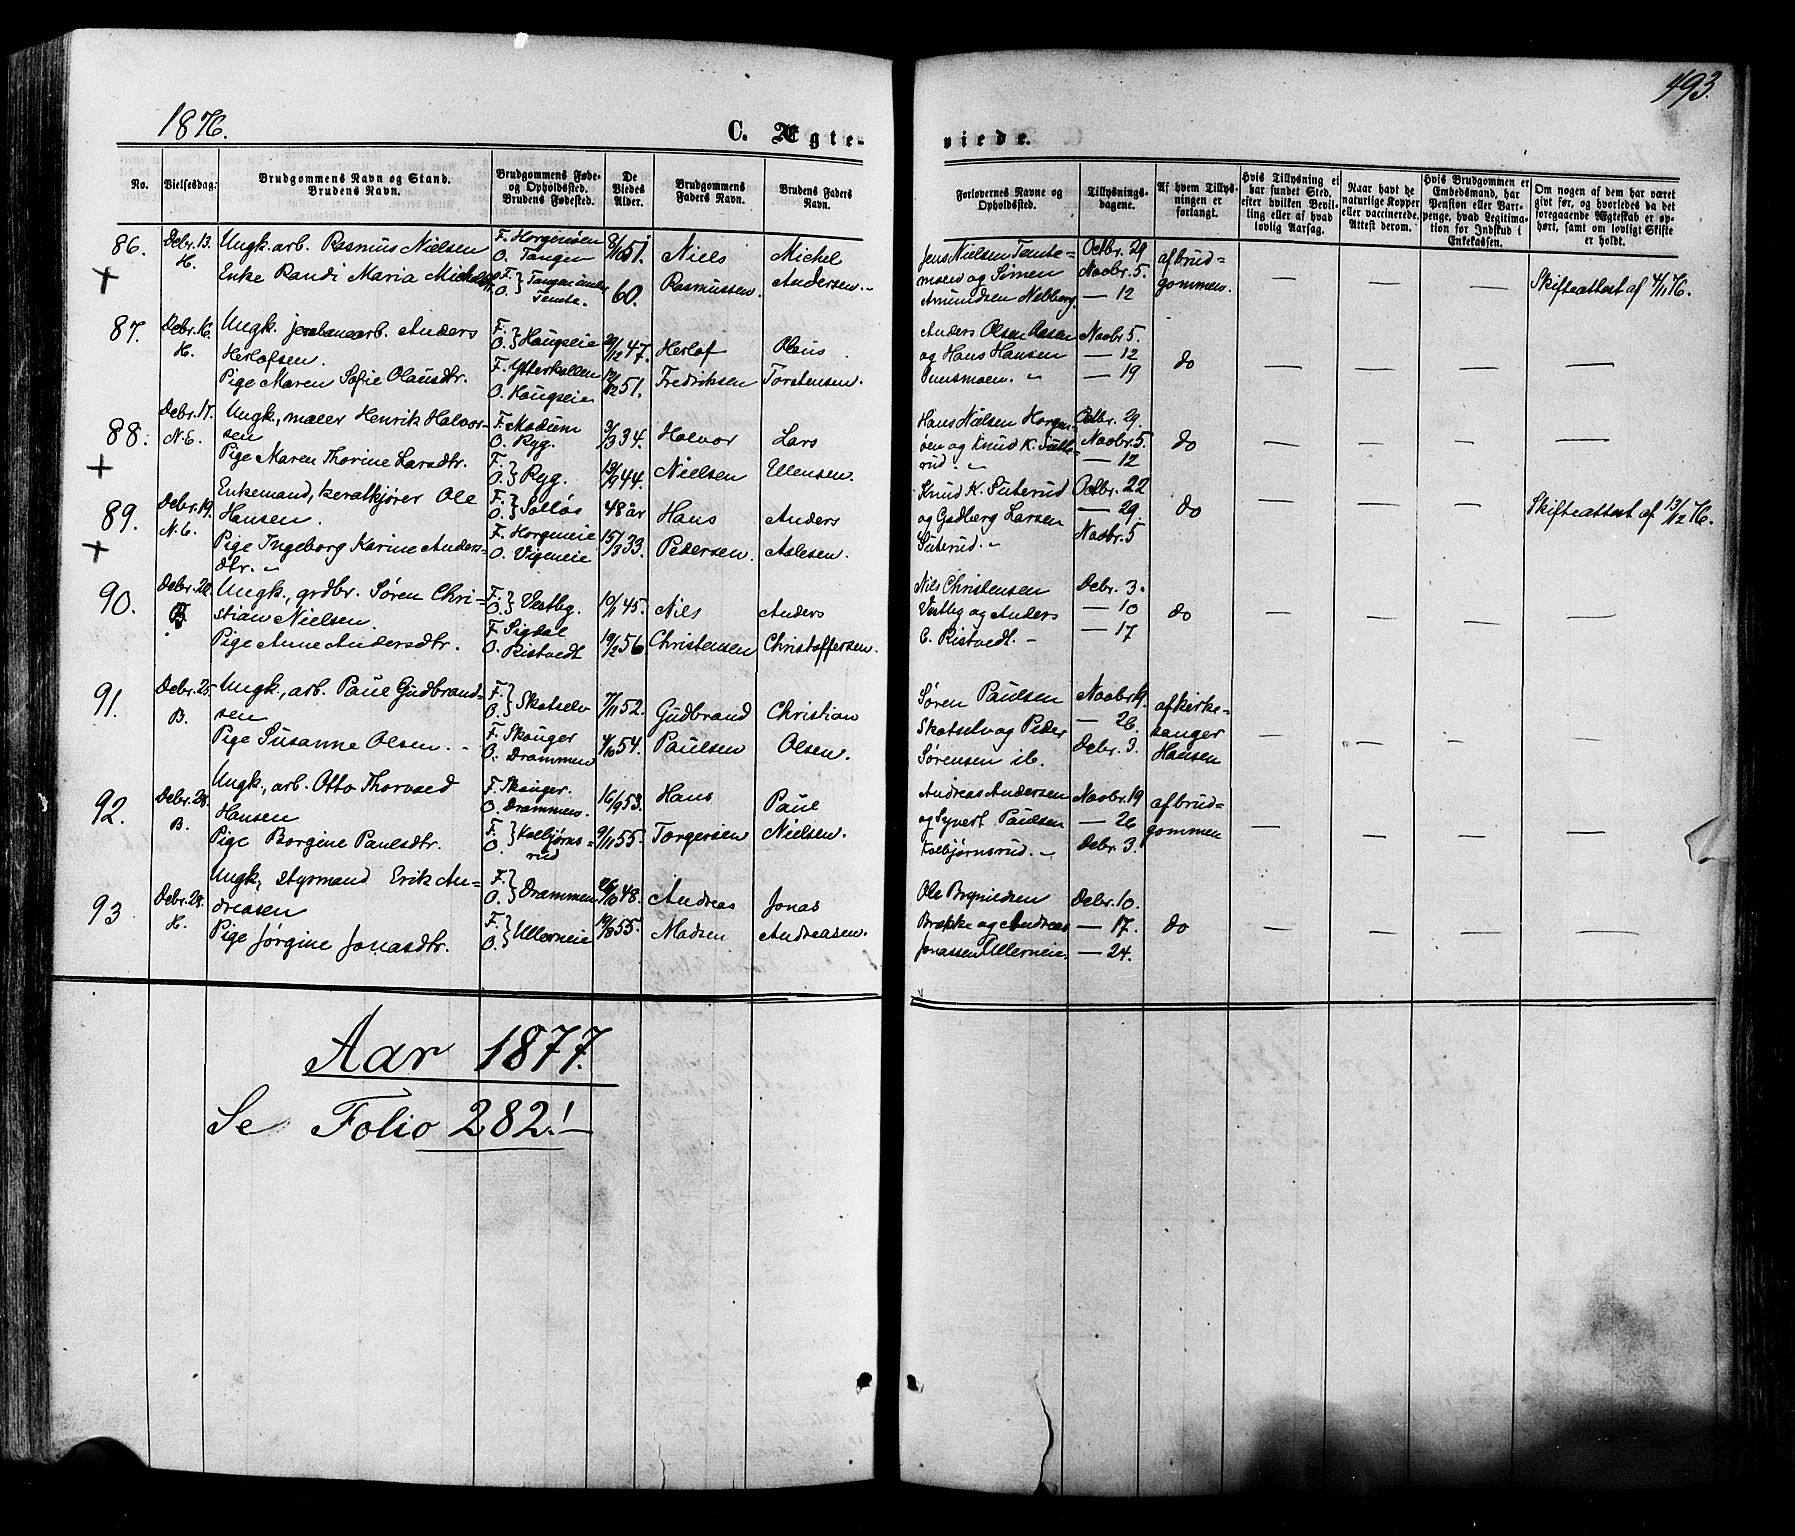 1876.
C. Ægte-
viede.
493.
No.
Vielsesdag:
Brudgommens Navn og Stand.
Brudens Navn.
Brudgommens Føde-
og Opholdssted.
Brudens Fødested.
De
Viedes
Alder.
Brudgommens
Faders Navn.
Brudens Faders
Navn.
Forlovernes Navne og
Opholdssted.
Tillysnings-
dagene.
Af hvem Tillys-
ningen er
forlangt.
Hvis Tillysning ei
har fundet Sted,
efter hvilken Bevil-
ling eller af hvad
lovlig Aarsag.
Naar havt de
naturlige Kopper
eller vaccinerede.
Attest derom.
Hvis Brudgommen er
Embedsmand, har
Pension eller Vart-
penge, hvad Legitima-
tion for Indskud i
Enkekassen.
Om nogen af dem har været
givt før, og hvorledes da det
foregaaende Ægteskab er op-
hørt, samt om lovligt Skifte
er holdt.
86. Debr. 13. H.
Ungk. arb. Rasmus Nielsen
Enke Randi Maria
F. Horgenøen
O. Tangen
F. O. } Tangen
51.
60.
Niels
Rasmussen.
Michel
Andersen.
Jens Nielsen Tante-
moen og Simen
Amundsen Nebberg.
Octbr. 29
Novbr. 5.
— 12
af brud-
gommen.
— — —
Skifteattest af 4/11 76.
87. Debr. 16. H.
Ungk. jernbanearb. Anders
Herlofsen.
Pige Maren Sofie Olausdtr.
F. O. } Haugseie
F. Ytterkollen
O. Haugseie
47.
51.
Herlof
Fredriksen
Olaus
Torstensen.
Anders Olsen Aasen
og Hans Hansen
Novbr. 5.
— 12
— 19
do
— — — —
88. Debr. 17. N.E.
Ungk., maler Henrik Halvor-
sen
Pige Maren Thorine Larsdtr.
F. Modum
O. Ryg.
F. O. } Ryg.
3/3 34.
44.
Halvor
Nielsen
Lars
Ellensen.
Hans Nielsen Horgen-
øen og Knud K. Sute-
rud.
Octbr. 29.
Novbr. 5
— 12
do
— — — —
89. Debr. 19. N.E.
Enkemand, Ole
Hansen.
Pige Ingeborg Karine Anders-
dtr.
F. O. } Solløs
F. Horgeneie
O. Vigeneie
48 år
15/3 33.
Hans
Pedersen
Anders
Aslesen.
Knud K. Suterud
og Gudberg Larsen
Suterud.
Octbr. 22
— 29.
Novbr. 5
do
— — —
Skifteattest af 13/12 76.
90. Debr. 20.
Ungk., grdbr. Søren Chri-
stian Nielsen.
Pige Anne Andersdtr.
F. O. } Vestby.
F. Sigdal
O. Ristvedt
10/11 45.
19/2 56.
Nils
Christensen
Anders
Christoffersen.
Nils Christensen
Vestby og Anders
C. Ristvedt.
Debr. 3.
— 10
— 17
do
— — — —
91. Debr. 25. B.
Ungk., arb. Paul Gudbrand-
sen
Pige Susanne Olsen.
F. O. } Skotselv
F. Skouger
O. Drammen
7/11 52.
4/10 54.
Gudbrand
Paulsen
Christian
Olsen.
Søren Paulsen
Skotselv og Peder
Sørensen ib.
Novbr. 19.
— 26.
Debr. 3.
af kirke-
sanger
Hansen
— — — —
92. Debr. 28. B.
Ungk., arb. Otto Thorvald
Hansen
Pige Borgine Paulsdtr.
F. Skouger.
O. Drammen.
F. O. } Kolbjørns-
rud
16/9 53.
9/11 55.
Hans
Torgersen
Paul
Nielsen.
Andreas Andersen
og Syvert Paulsen
Kolbjørnsrud.
Novbr. 19
— 26
Debr. 3.
af brud-
gommen
— — — —
93 Debr. 28. H.
Ungk., styrmand Erik An-
dreasen
Pige Jørgine Jonasdtr.
F. O. } Drammen
F. O. } Ullerneie
26/10 48.
19/8 55.
Andreas
Madsen
Jonas
Andreasen.
Ole Brynildsen
Brække og Andreas
Jonassen Ullerneie.
Debr. 10.
— 17.
— 24.
do
— — — —
Aar 1877.
Se Folio 282!